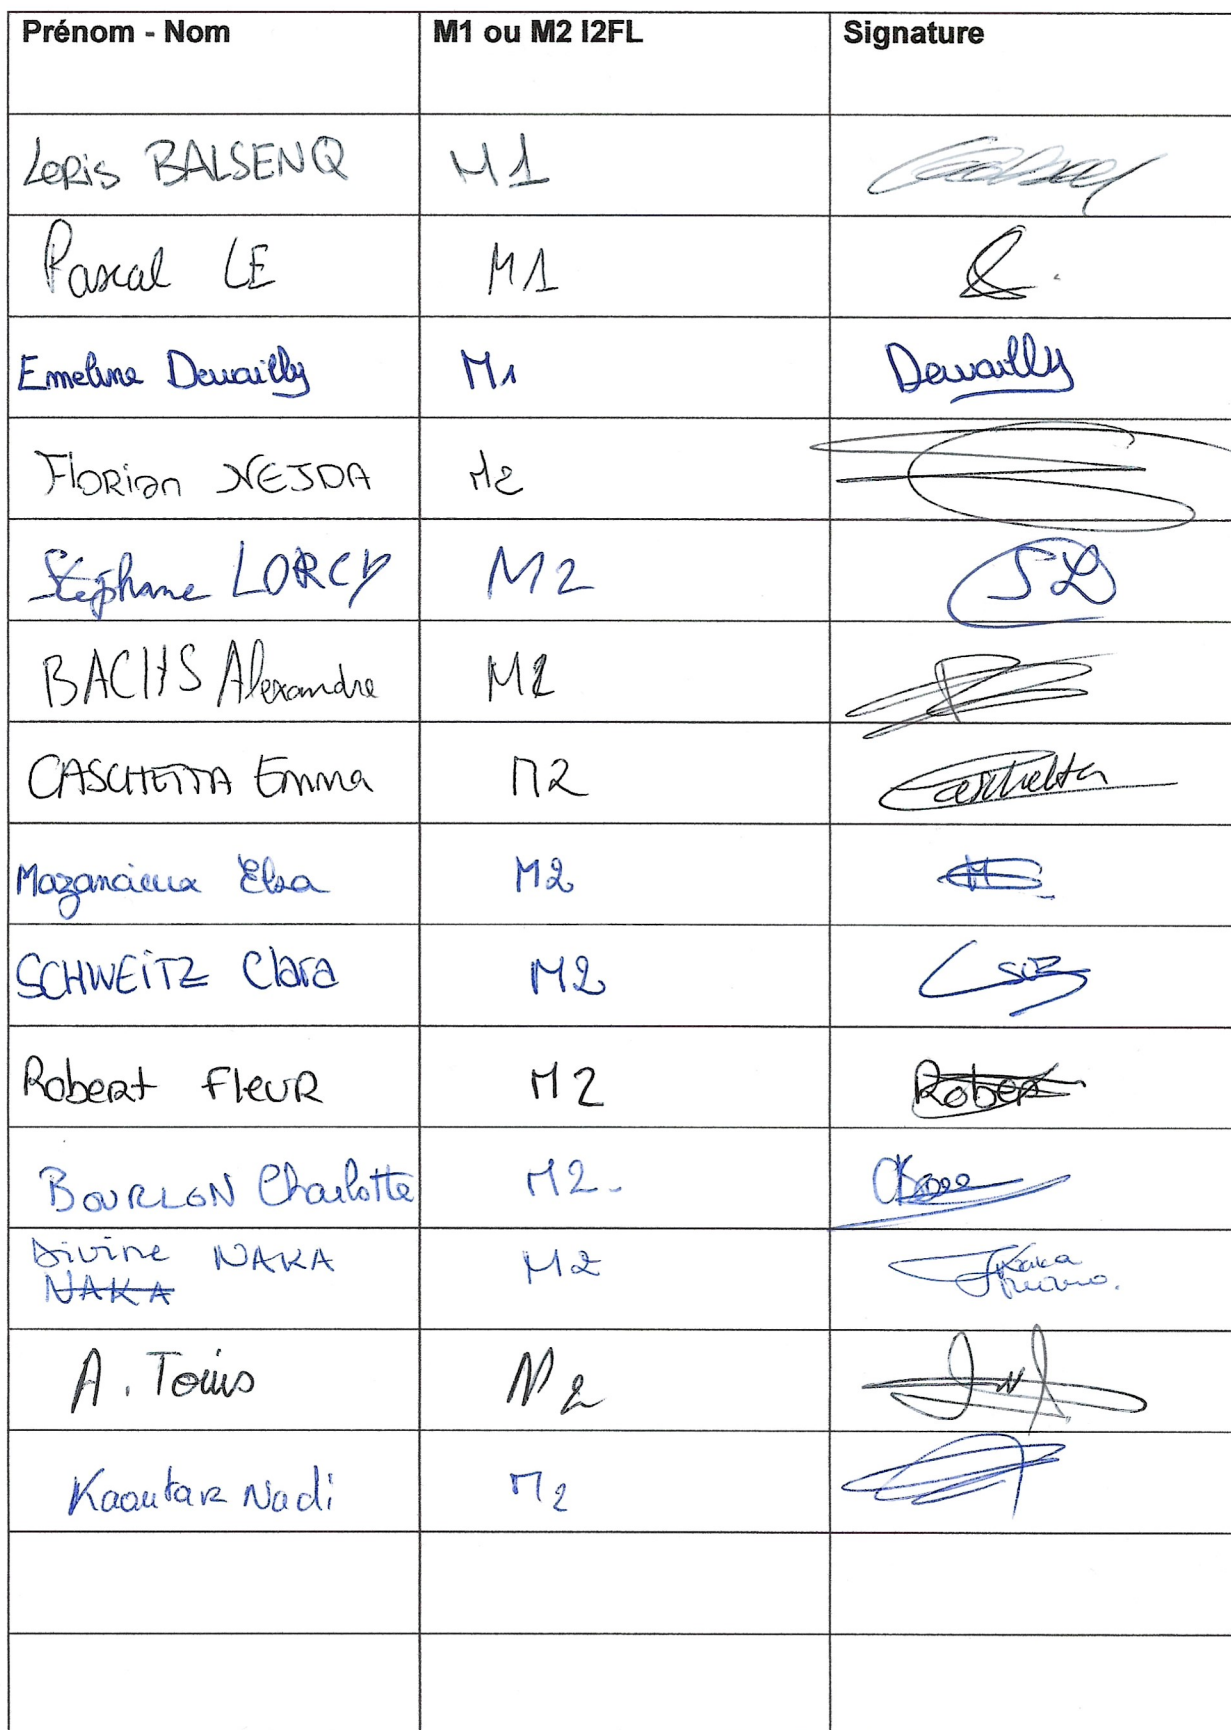 Prénom - Nom M1 ou M2 I2FL Signature
Loris BALSENQ M1
Pascal LE M1
Emeline Dewailly M1 Dewailly
Florian NEJDA M2
Stéphane LORCY M2 SL
BACHS Alexandre M2
CASCHETTA Emma M2 Caschetta
Mazancieux Elsa M2
SCHWEITZ Clara M2
Robert Fleur M2 Robert
BOURLON Charlotte M2
Divine NAKA M2 Naka
NAKA
A. M2
Kaoutar Nadi M2